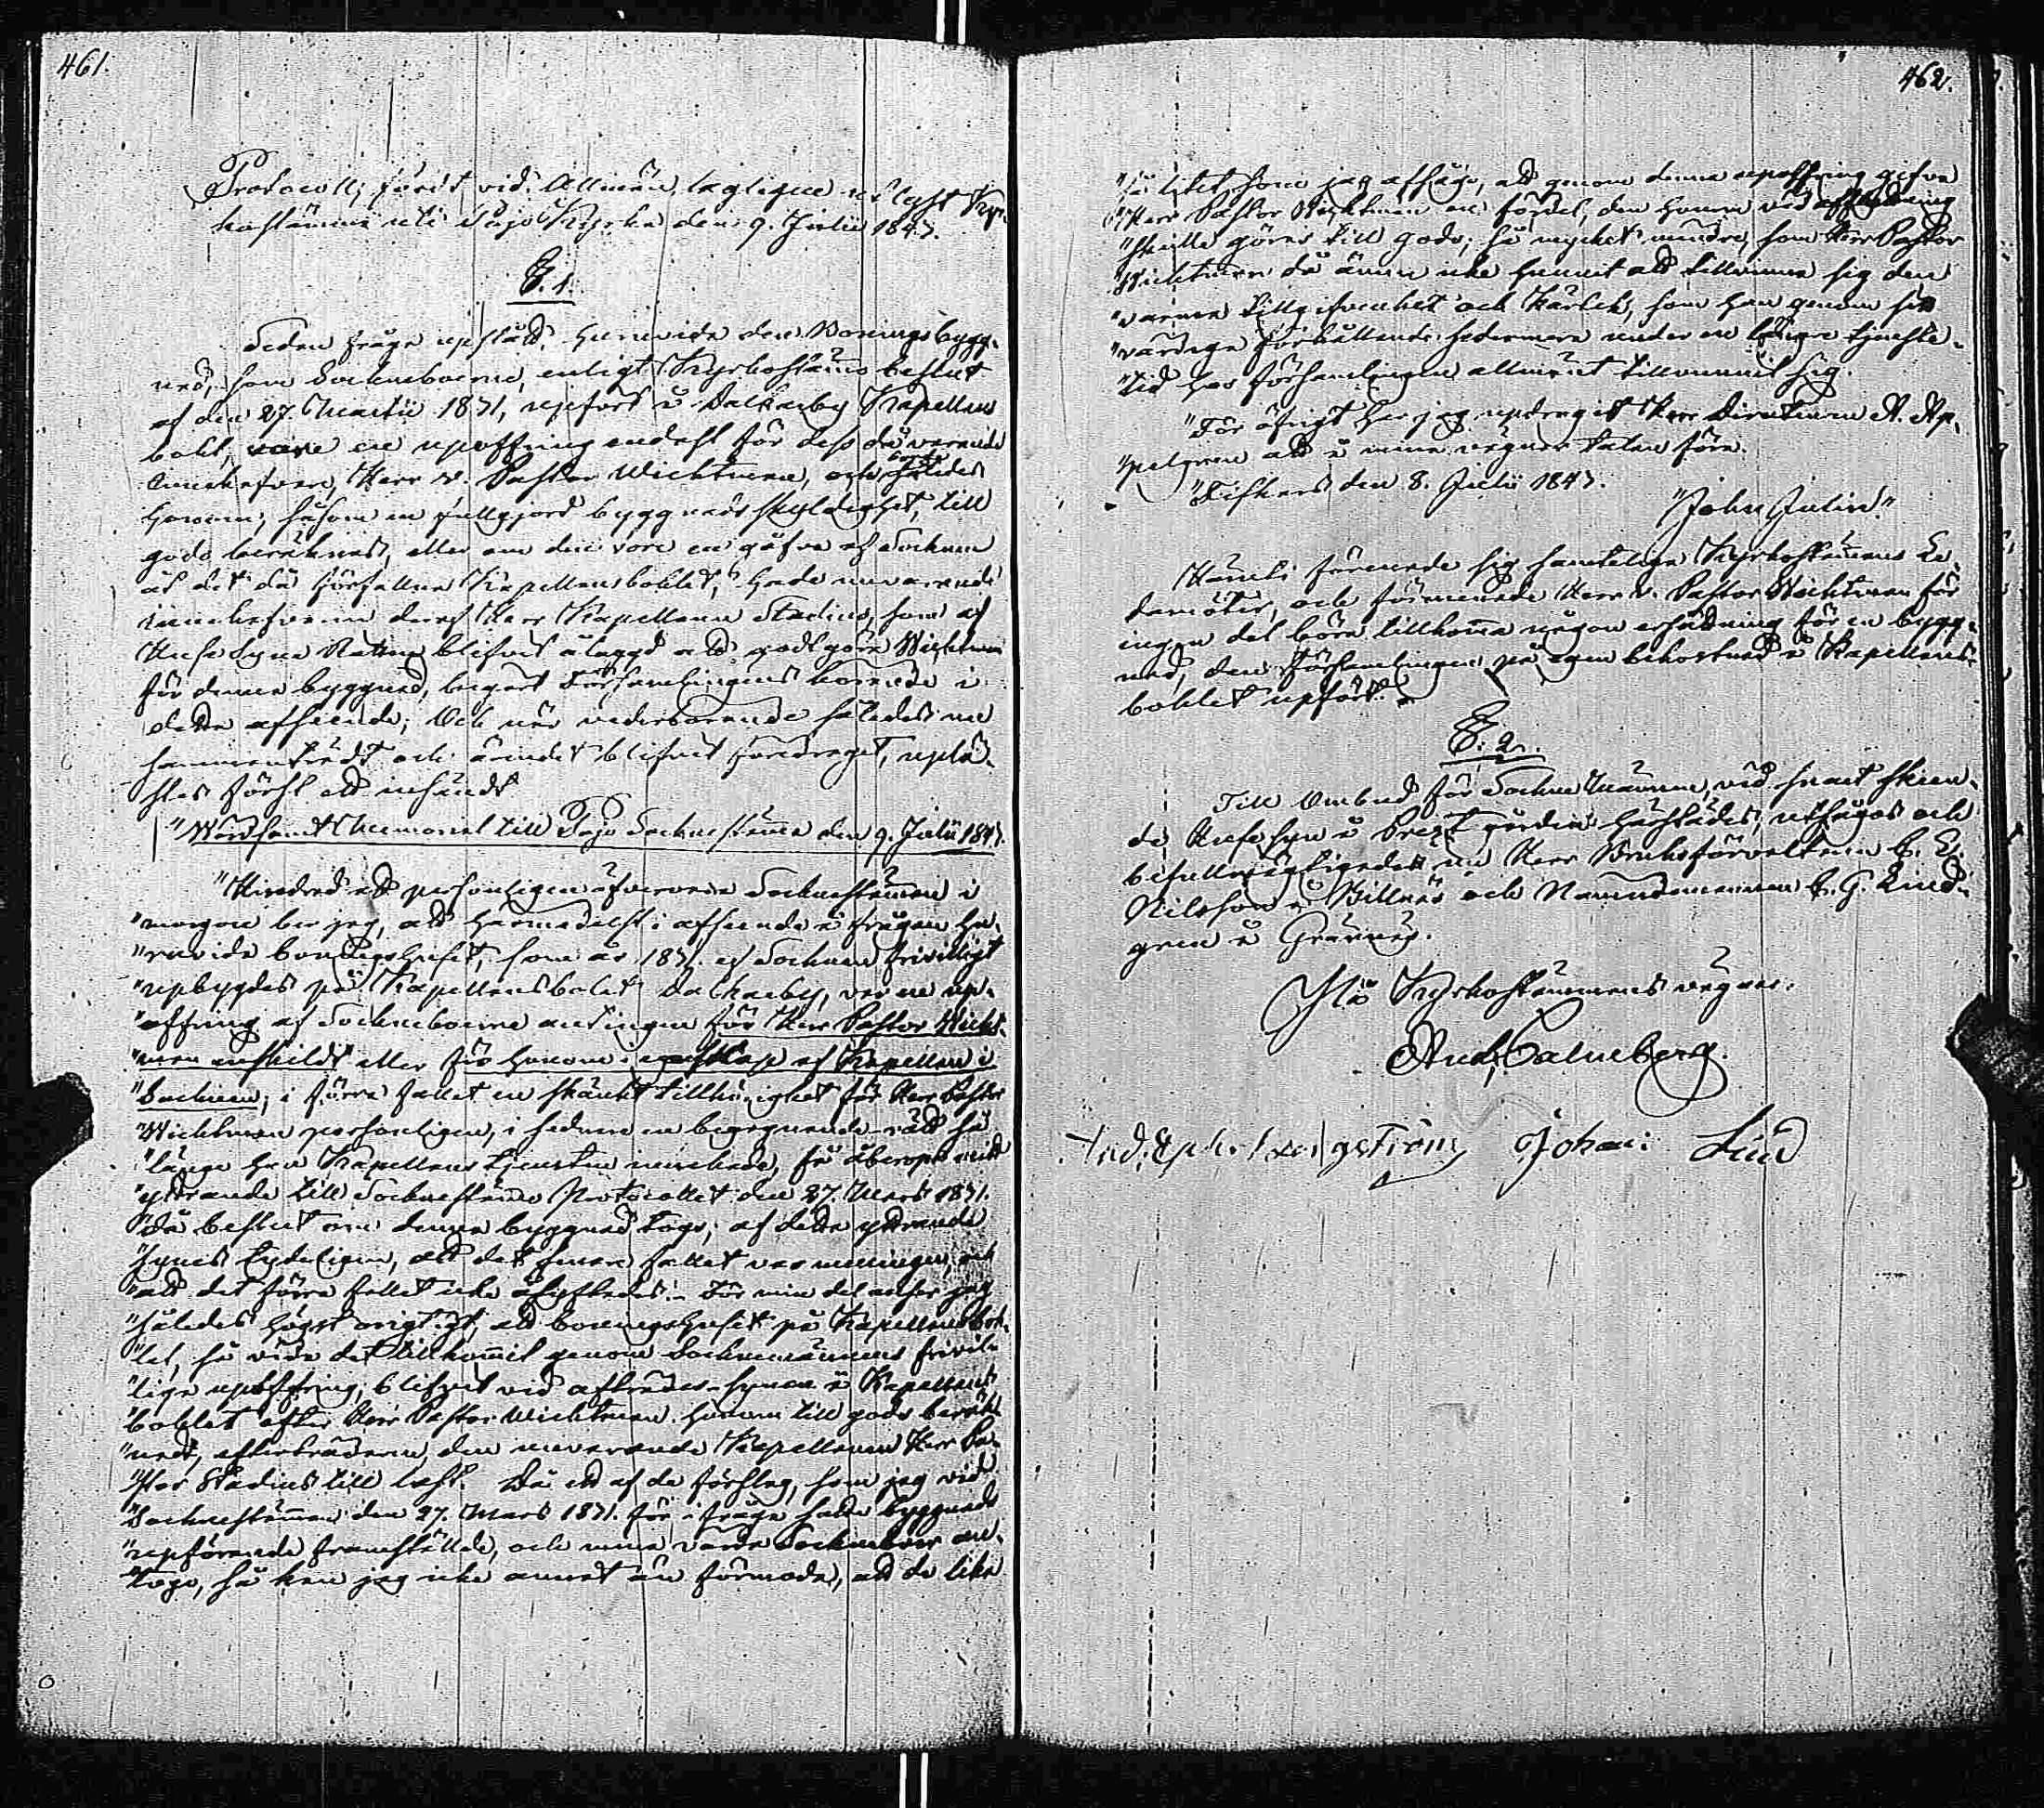 461.
Protocoll, fördt vid Allmän lagligen utlyst Kyr-
kostämma uti Pojo Kyrka den 9. Julii 1843.
§. 1.
Sedan fråga upstådt, huruvida den Boningsbygg-
nad, som Sockneboerne, enligt Kyrkostämmo beslut
af den 27. Martii 1831, upfört å Dalkarby Kapellans
bol, vore en upoffring endast för dess då varande
innehafvare, Herr v. Pastor Wichtman, och borde således
honom, såsom en fullgjord byggnads skyldighet, till
godo beräknas, eller om den vore en gåfva af Socknen
åt det då förfallna Kapellansbolet, hade nu varande
innehafvaren deraf Herr Kapellanen Stadius, som af
Husesyns Rätten blifvit ålaggd att godtgöra Wichtman
för denna byggnad, begärt Församlingens hörande i
detta afseende; Och när vederbörande således nu
sammanträdt och ärendet blifvit föredraget, uplä-
stes först ett insändt
"Wördsamt Memorial till Pojo Sockne stämma den 9. Julii 1843.
"Hindrad att personligen öfvervara Socknestämman i
"morgon ber jeg, att härmedelst i afseende å frågan hu-
"ruvida boningshuset, som år 1831. af Socknen frivilligt
"upbygdes på Kapellansbolet Dalkarby, var en up-
"offring af Sockneboerne antingen för Herr Pastor Wicht-
"man enskildt eller för honom i egenskap af Kapellan i
"Socknen; i förra fallet en skänkt tillhörighet för Herr Pastor
"Wichtman personligen, i sednare en begagnande rätt så
"länge han Kapellans tjensten innehade, få åberopa mitt
"yttrande till Sockenstämmo Protocollet den 27. Mars 1831.
"då beslut om denna byggnad togs; af detta yttrande
"synes tydeligen, att det senare fallet var meningen, och
"att det förra fallet icke åsyftades. För min del anser jag
"således högst origtigt, att boningshuset på Kapellansbo-
"let, så vida det tillkommit genom Sockenmännens frivil-
"liga upoffring, blifvit vid afträdes-synen å Kapellans
"bolet efter Herr Pastor Wichtman honom till godo beräk-
"nadt, efterträdaren, den nuvarande Kapellanen Herr Pa-
"stor Stadius till last. Då ett af de förslag, som jag vid
"Socknestämman den 27. Mars 1831. för i fråga satte byggnads
"upförande framställde, och mina värda Socknebor an-
"togo, så kan jag icke annat än förmoda, att de lika
462.
"så litet, som jag afsågo, att genom denna upoffring gifva
"Herr Pastor Wichtman en fördel, den honom vid afflyttning
"skulle göras till godo; så mycket mindre, som Herr Pastor
"Wichtman då ännu icke hunnit att tillvinna sig den
"varma tillgifvenhet och kärlek, som han genom sitt
"värdiga förhållande sedermera under en längre tjenste-
"tid hos församlingen allmänt tillvunnit sig.
"För öfrigt har jag updragit Herr Directeuren A. Ap-
"pelgren att å mina vägnar talan föra.
"Fiskars den 8. Julii 1843.
"John Julin."
Härmed förenade sig samtelige Kyrkostämmans Le-
damöter, och förmenade Herr v. Pastor Wichtman för
ingen del böra tillkomma någon ersättning för en bygg-
nad, den Församlingen på egen bekostnad å Kapellans-
bolet upfört.
§. 2.
Till Ombud för Sockne Männen, vid snart skeen-
de Husesyn å Prestgården härstädes, utsågos och
befullmägtigades nu Herr Bruksförvaltaren C. E.
Nilsson å Billnäs och Nämndemannen C. G. Lind-
gren å Grännäs.
På Kyrkostämmans vägnar.
And. Calneberg.
Johan Lind